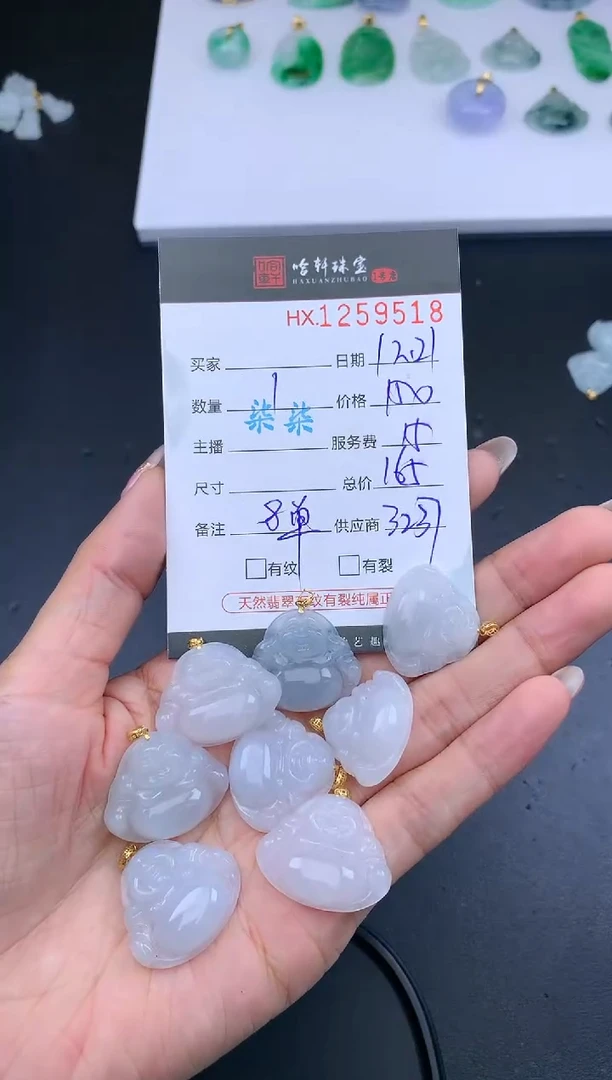 哈轩珠宝 1号店
HAXUANZHUBAO
HX.1259518
买家 日期 12.21
数量 1 价格 150
柒柒
主播 服务费 15
尺寸 总价 165
备注 8单 供应商 323
有纹 有裂
天然翡翠有纹有裂纯属正
艺 趣